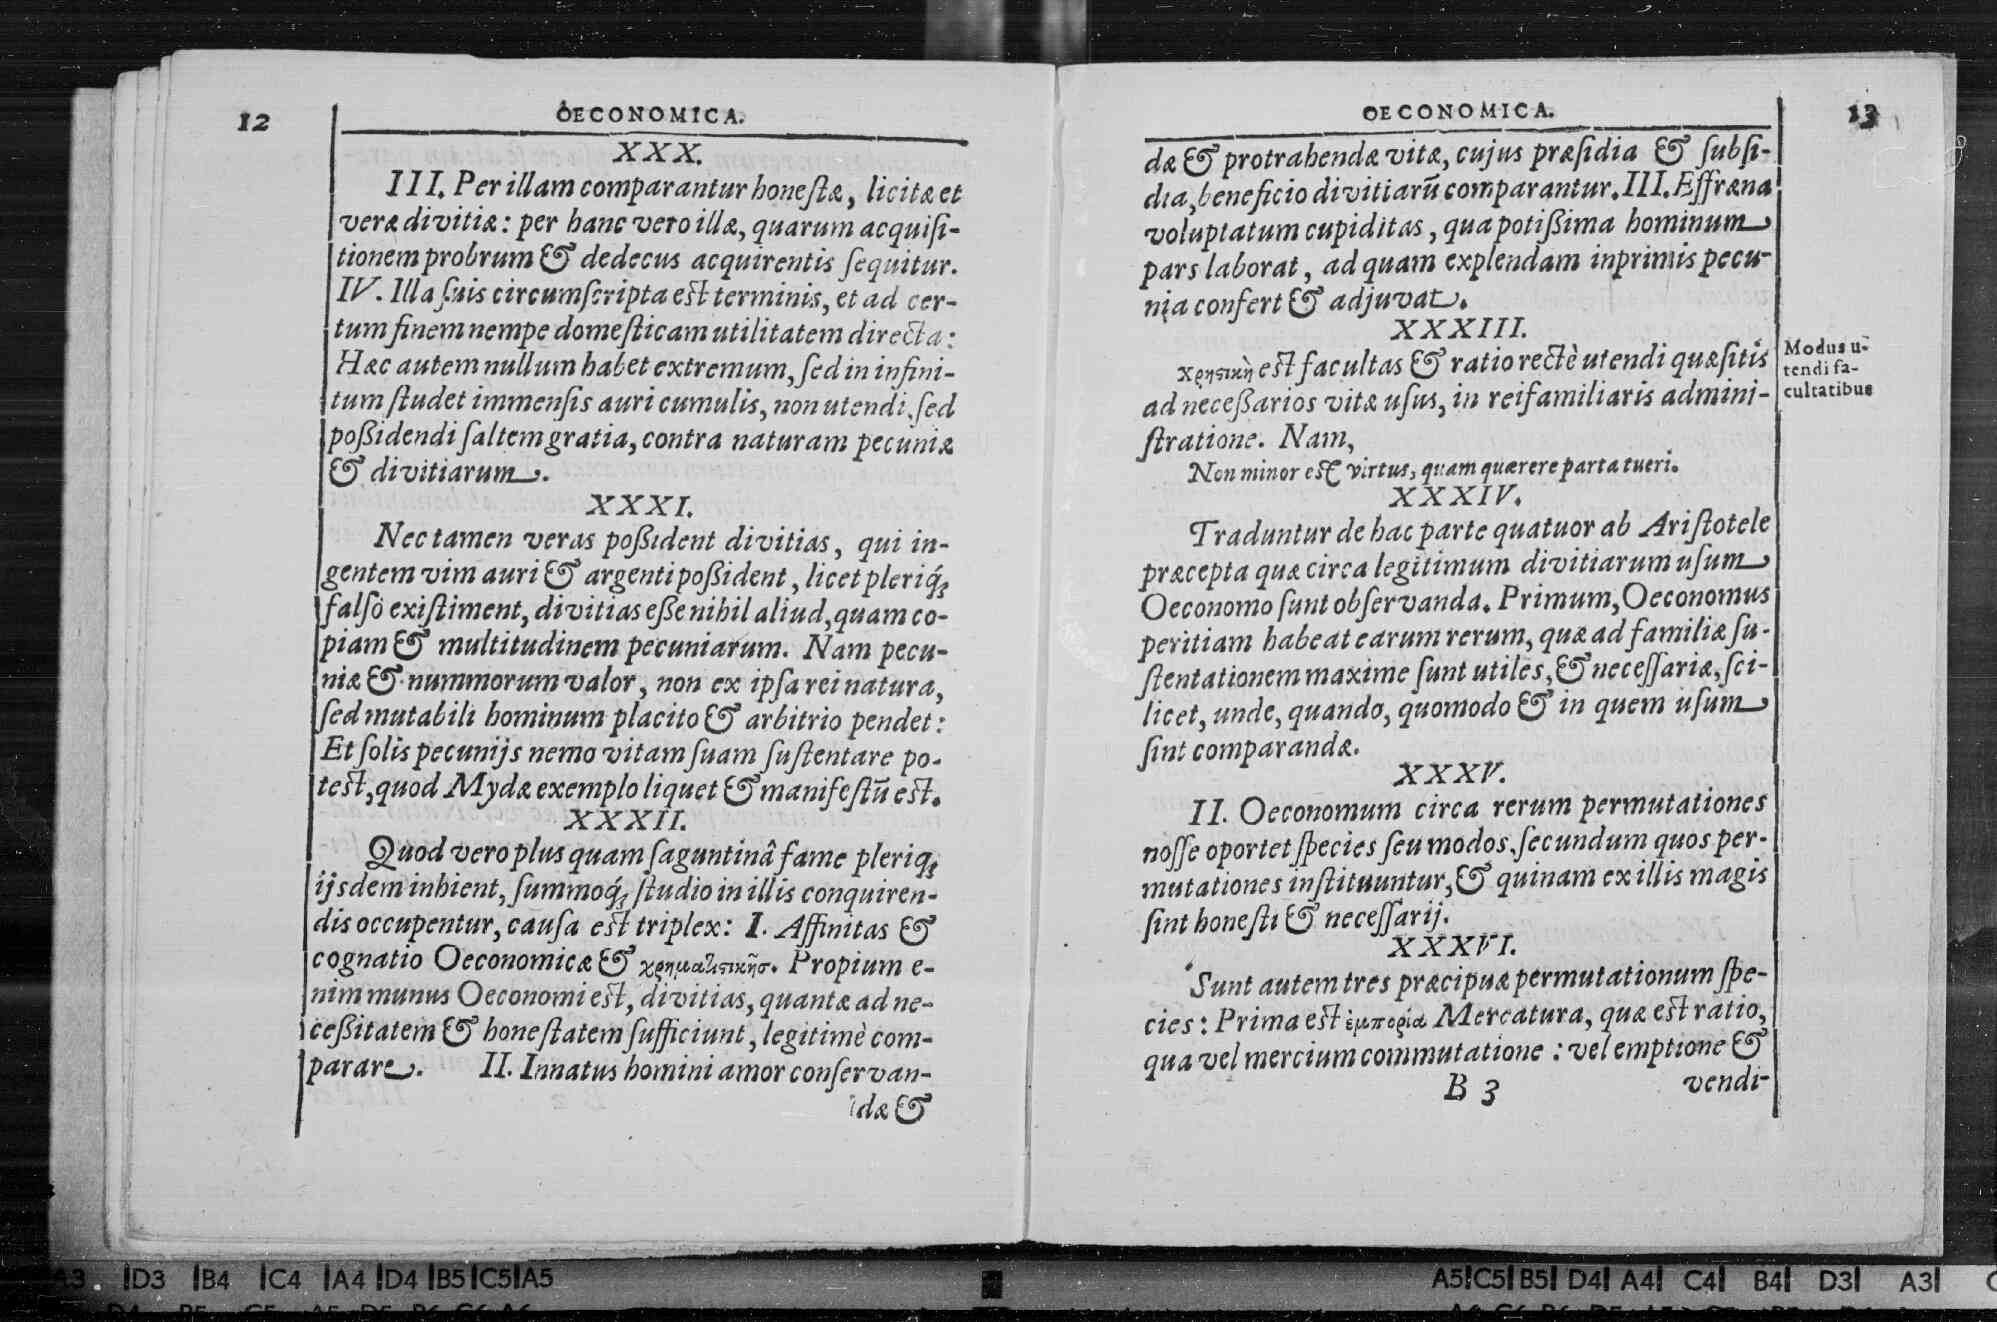 12
OECONOMICA.
XXX.
III. Per illam comparantur honeſtæ, licitæ et
veræ divitiæ: per hanc vero illæ, quarum acquiſi-
tionem probrum & dedecus acquirentis ſequitur.
IV. Illa ſuis circumſcripta est terminis, et ad cer-
tum finem nempe domeſticam utilitatem directa:
Hæc autem nullum habet extremum, ſed in infini-
tum ſtudet immenſis auri cumulis, non utendi, ſed
poßidendi ſaltem gratia, contra naturam pecuniæ
& divitiarum.
XXXI.
Nec tamen veras poßident divitias, qui in-
gentem vim auri & argenti poßident, licet pleriq́;
falſò exiſtiment, divitias eße nihil aliud, quam co-
piam & multitudinem pecuniarum. Nam pecu-
niæ & nummorum valor, non ex ipſa rei natura,
ſed mutabili hominum placito & arbitrio pendet:
Et ſolis pecunijs nemo vitam ſuam ſuſtentare po-
test, quod Mydæ exemplo liquet & manifeſtũ est.
XXXII.
Quod vero plus quam ſaguntinâ fame pleriq;
ijsdem inhient, ſummoq́; ſtudio in illis conquiren-
dis occupentur, cauſa est triplex: I. Affinitas &
cognatio Oeconomicæ & χρηματιστικῆσ. Propium e-
nim munus Oeconomi est, divitias, quantæ ad ne-
ceßitatem & honeſtatem ſufficiunt, legitimè com-
parare. II. Innatus homini amor conſervan-
dæ &
OECONOMICA.
13
dæ & protrahendæ vitæ, cujus præſidia & ſubſi-
dia, beneficio divitiarũ comparantur. III. Effræna
voluptatum cupiditas, qua potißima hominum
pars laborat, ad quam explendam inprimis pecu-
nia confert & adjuvat.
XXXIII.
χρηστικὴ est facultas & ratio rectè utendi quæſitis
ad neceßarios vitæ uſus, in rei familiaris admini-
ſtratione. Nam,
Modus u-
tendi fa-
cultatibus
Non minor est virtus, quam quærere parta tueri.
XXXIV.
Traduntur de hac parte quatuor ab Ariſtotele
præcepta quæ circa legitimum divitiarum uſum
Oeconomo ſunt obſervanda. Primum, Oeconomus
peritiam habeat earum rerum, quæ ad familiæ ſu-
ſtentationem maxime ſunt utiles, & neceſſariæ, ſci-
licet, unde, quando, quomodo & in quem uſum
ſint comparandæ.
XXXV.
II. Oeconomum circa rerum permutationes
noſſe oportet ſpecies ſeu modos, ſecundum quos per-
mutationes inſtituuntur, & quinam ex illis magis
ſint honeſti & neceſſarij.
XXXVI.
Sunt autem tres præcipuæ permutationum ſpe-
cies: Prima est ἐμπορία Mercatura, quæ est ratio,
qua vel mercium commutatione: vel emptione &
B 3
vendi-
A3 D3 B4 C4 A4 D4 B5 C5 A5
A5 C5 B5 D4 A4 C4 B4 D3 A3